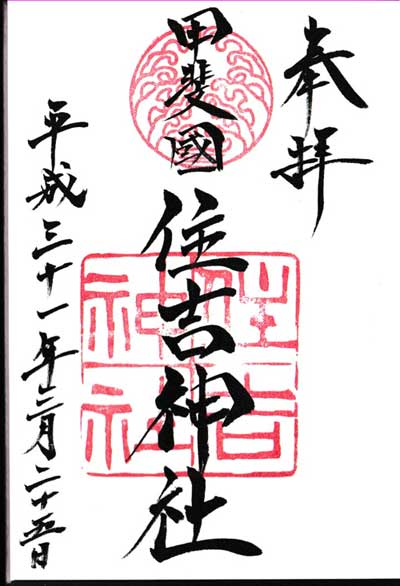 奉拝
甲斐國
住吉神社
住吉神社
平成三十一年三月二十五日